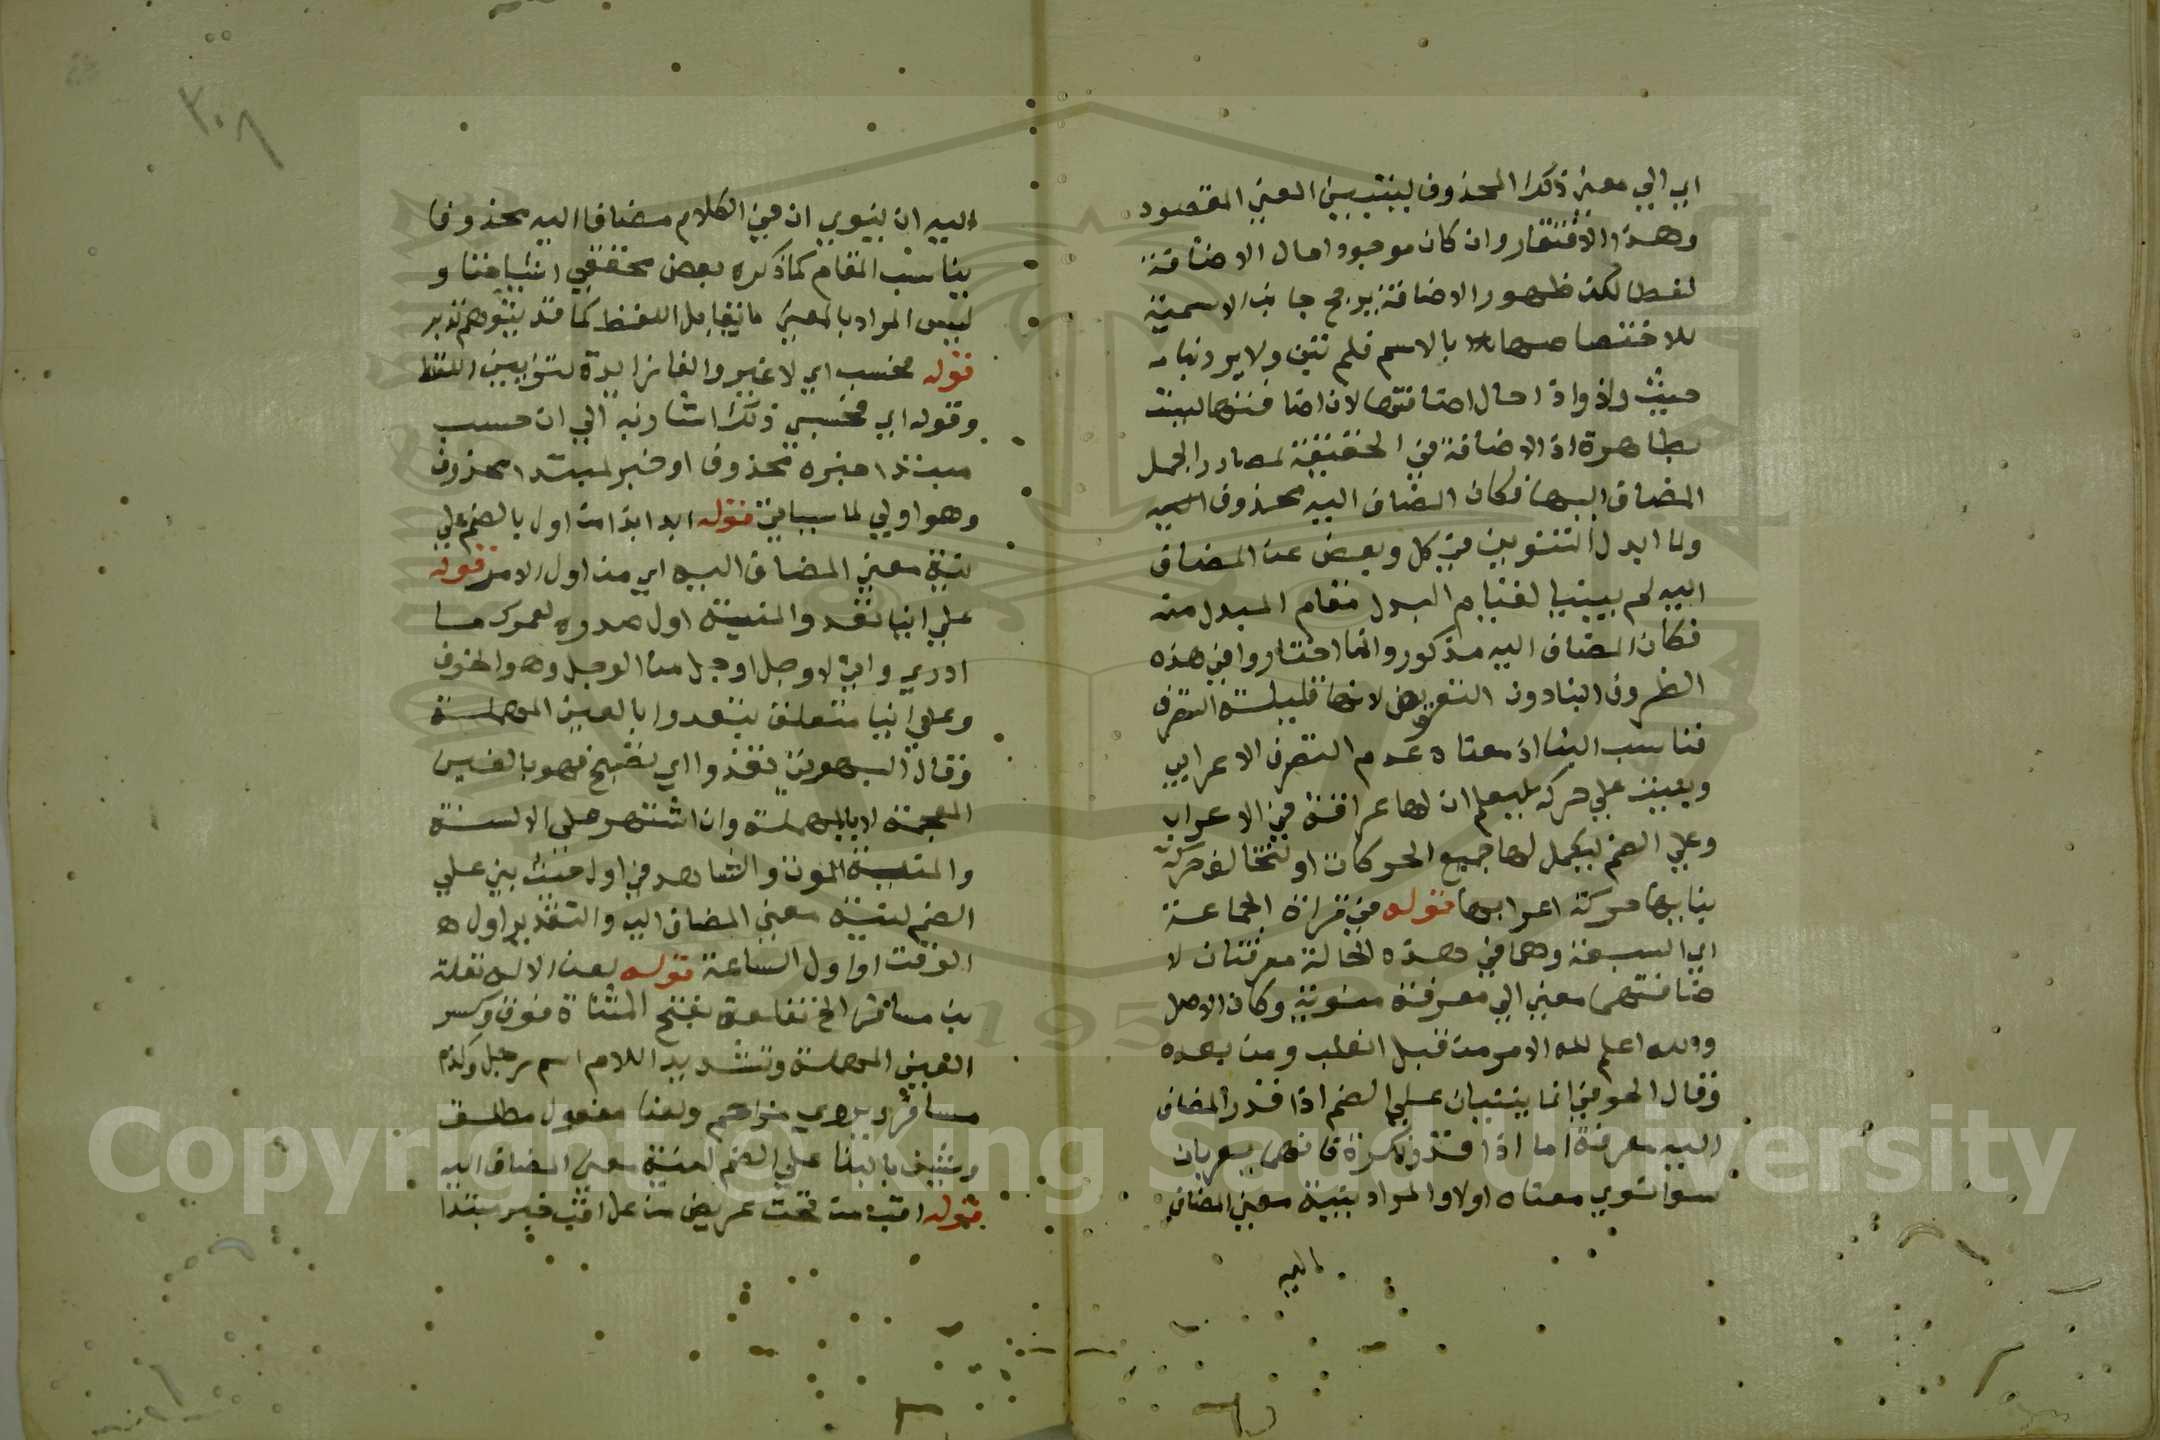 اي الي معني ذلك المحذوف ليتبين المعني المقصود
وهذا الافتقار وان كان موجودا حال الاضافة
لفظا لكن ظهور الاضافة يرجح جانب الاسمية
للاختصاصها بالاسم فلم تبن ولا يرد بنا
حيث واذ واذا حال اضافتها لان اضافتها ليست
بظاهرة اذ الاضافة في الحقيقة لمصادر الجمل
المضاف اليها فكان المضاف اليه محذوف
ولما ابدل التنوين في كل وبعض عن المضاف
اليه لم يبنيا لقيام البدل مقام المبدل منه
فكان المضاف اليه مذكور وانما اختاروا في هذه
الظروف البنا دون التعويض لانها قليلة التصرف
فناسب البنا اذ معناه عدم التصرف الاعرابي
وبنيت علي حركة ليعلم ان لها عراقة في الاعراب
وعلي الضم ليكمل لها جميع الحركات او لتخالف حركة
بنايها حركة اعرابها قوله في قراة الجماعة
اي السبعة وهما في هذه الحالة معرفتان لا
ضافتهما معني الي معرفة منوية وكان الاصل
والله اعلم لله الامر من قبل الغلب ومن بعده
وقال الحوفي انما يبنيان علي الضم اذا قدر المضاف
اليه معرفة اما اذا قدر نكرة فانهما يعربان
سوا نوي معناه اولا والمراد بنية معني المضاف
اليه
٣٠٨
اليه ان ينوي ان في الكلام مضافا اليه محذوفا
يناسب المقام كما ذكره بعض محققي اشياخنا و
ليس المراد بالمعني ما يقابل اللفظ كما قد يتوهم تدبر
قوله فحسب اي لا غير والفا زايدة لتزيين اللفظ
وقوله اي فحسبي ذلك اشار به الي ان حسب
مبتدا خبره محذوف او خبر لمبتدا محذوف
وهو اولي لما سياتي قوله ابدا بذا من اول بالضم علي
نية معني المضاف اليه اي من اول الامر قوله
علي اينا تغدو المنية اول صدره لعمرك ما
ادري واني لاوجل اوجل من الوجل وهو الخوف
وعلي اينا متعلق بتعدوا بالعين المهملة
وقال البهوتي تغدوا اي تصبح فهو بالغين
المعجمة لا بالمهملة وان اشتهر علي الالسنة
والمنية الموت والشاهد في اول حيث بني علي
الضم لنية معني المضاف اليه والتقدير اول
الوقت او اول الساعة قوله لعن الاله تعلة
بن مسافر الخ تعلة بفتح المثناة فوق وكسر
العين المهملة وتشديد اللام اسم رجل وكذا
مسافر ويروي مزاحم ولعنا مفعول مطلق
ويشن بالبنا علي الضم لنية معني المضاف اليه
قوله اقب من تحت عريض من عل اقب خبر مبتدا
Copyright © King Saud University
1957